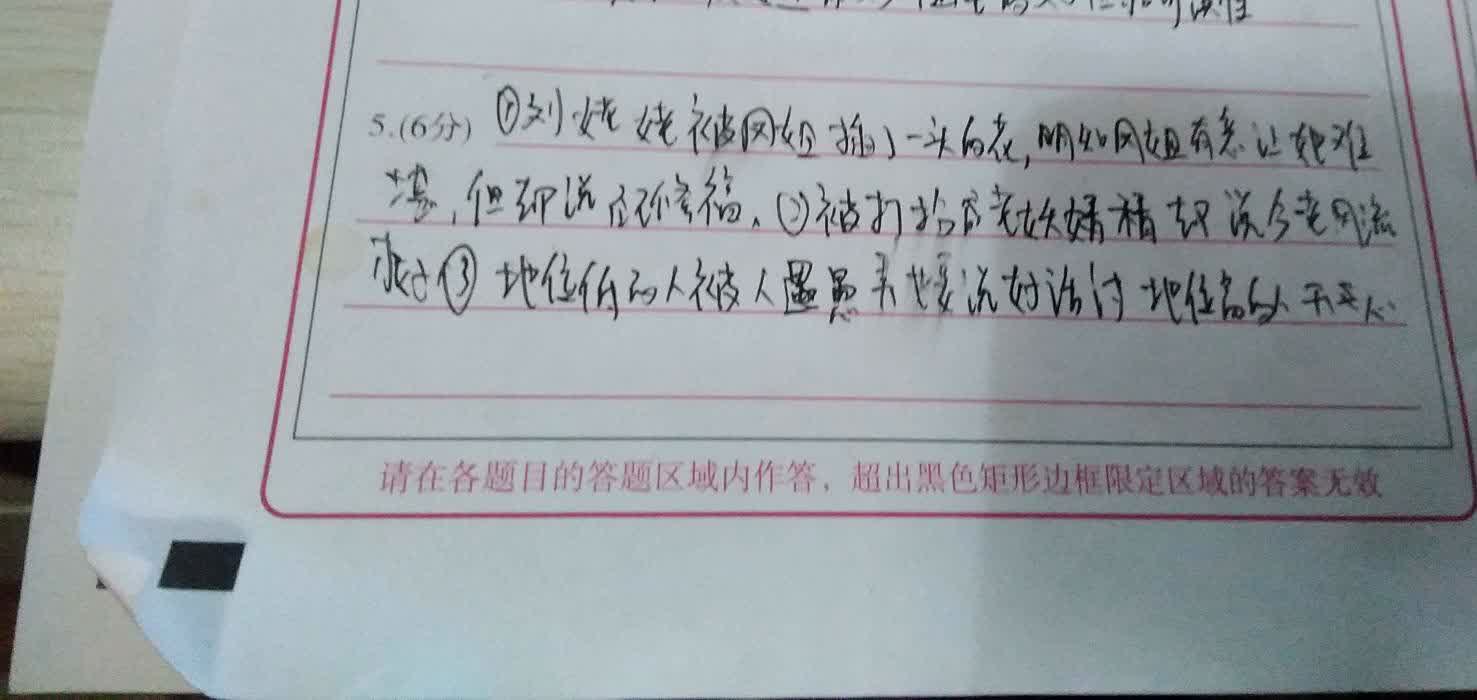 5.(6分) ①刘姥姥被凤姐插了一头的花,明知凤姐有意让她难
堪,但却说应祢修福、②被打扮成老妖精精却说今老风流
③地位低的人被人愚还要说好话讨地位高的人开心
请在各题目的答题区域内作答，超出黑色矩形边框限定区域的答案无效